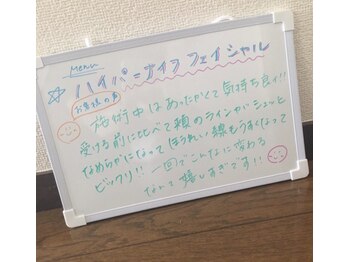 Menu
☆ハイパーナイフフェイシャル
お客様の声
施術中はあったかくて気持ち良く!!
受ける前に比べて頬のラインがシュッと
なめらかになってほうれい線もうすくなって
ビックリ!! 一回でこんなに変わる
なんて嬉しすぎです!!